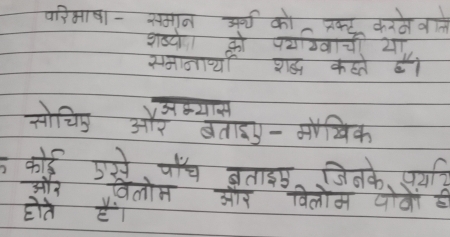 परिभाषा - समान अर्थ को प्रकट करने वाले
शब्दों को पर्यायवाची या
समानार्थी शब्द कहते हैं।
अभ्यास
सोचिए और बताइए - मौखिक
कोई ऐसे पाँच बताइए जिनके
और विलोम और विलोम दोनों ही
होते हैं।